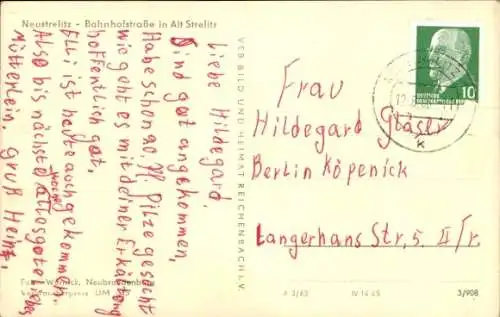 Neustrelitz - Bahnhofstraße in Alt Strelitz
Liebe Hildegard,
Sind gut angekommen,
Habe schon 20. Pilze gesucht
wie geht es mit deiner Erkältung
hoffentlich gut.
Elli ist heute auch gekommen
Also bis nächste Woche
alles gute liebes
Mütterlein, gruß Heinz,
Foto: Wernick, Neubrandenburg
VEB BILD UND HEIMAT REICHENBACH I. V.
DEUTSCHE
DEMOKRATISCHE REPUBLIK
10
k
Frau
Hildegard Gläser
Berlin Köpenick
Langerhans Str, 5 II/r.
A 2/63 IV-14-45 3/908